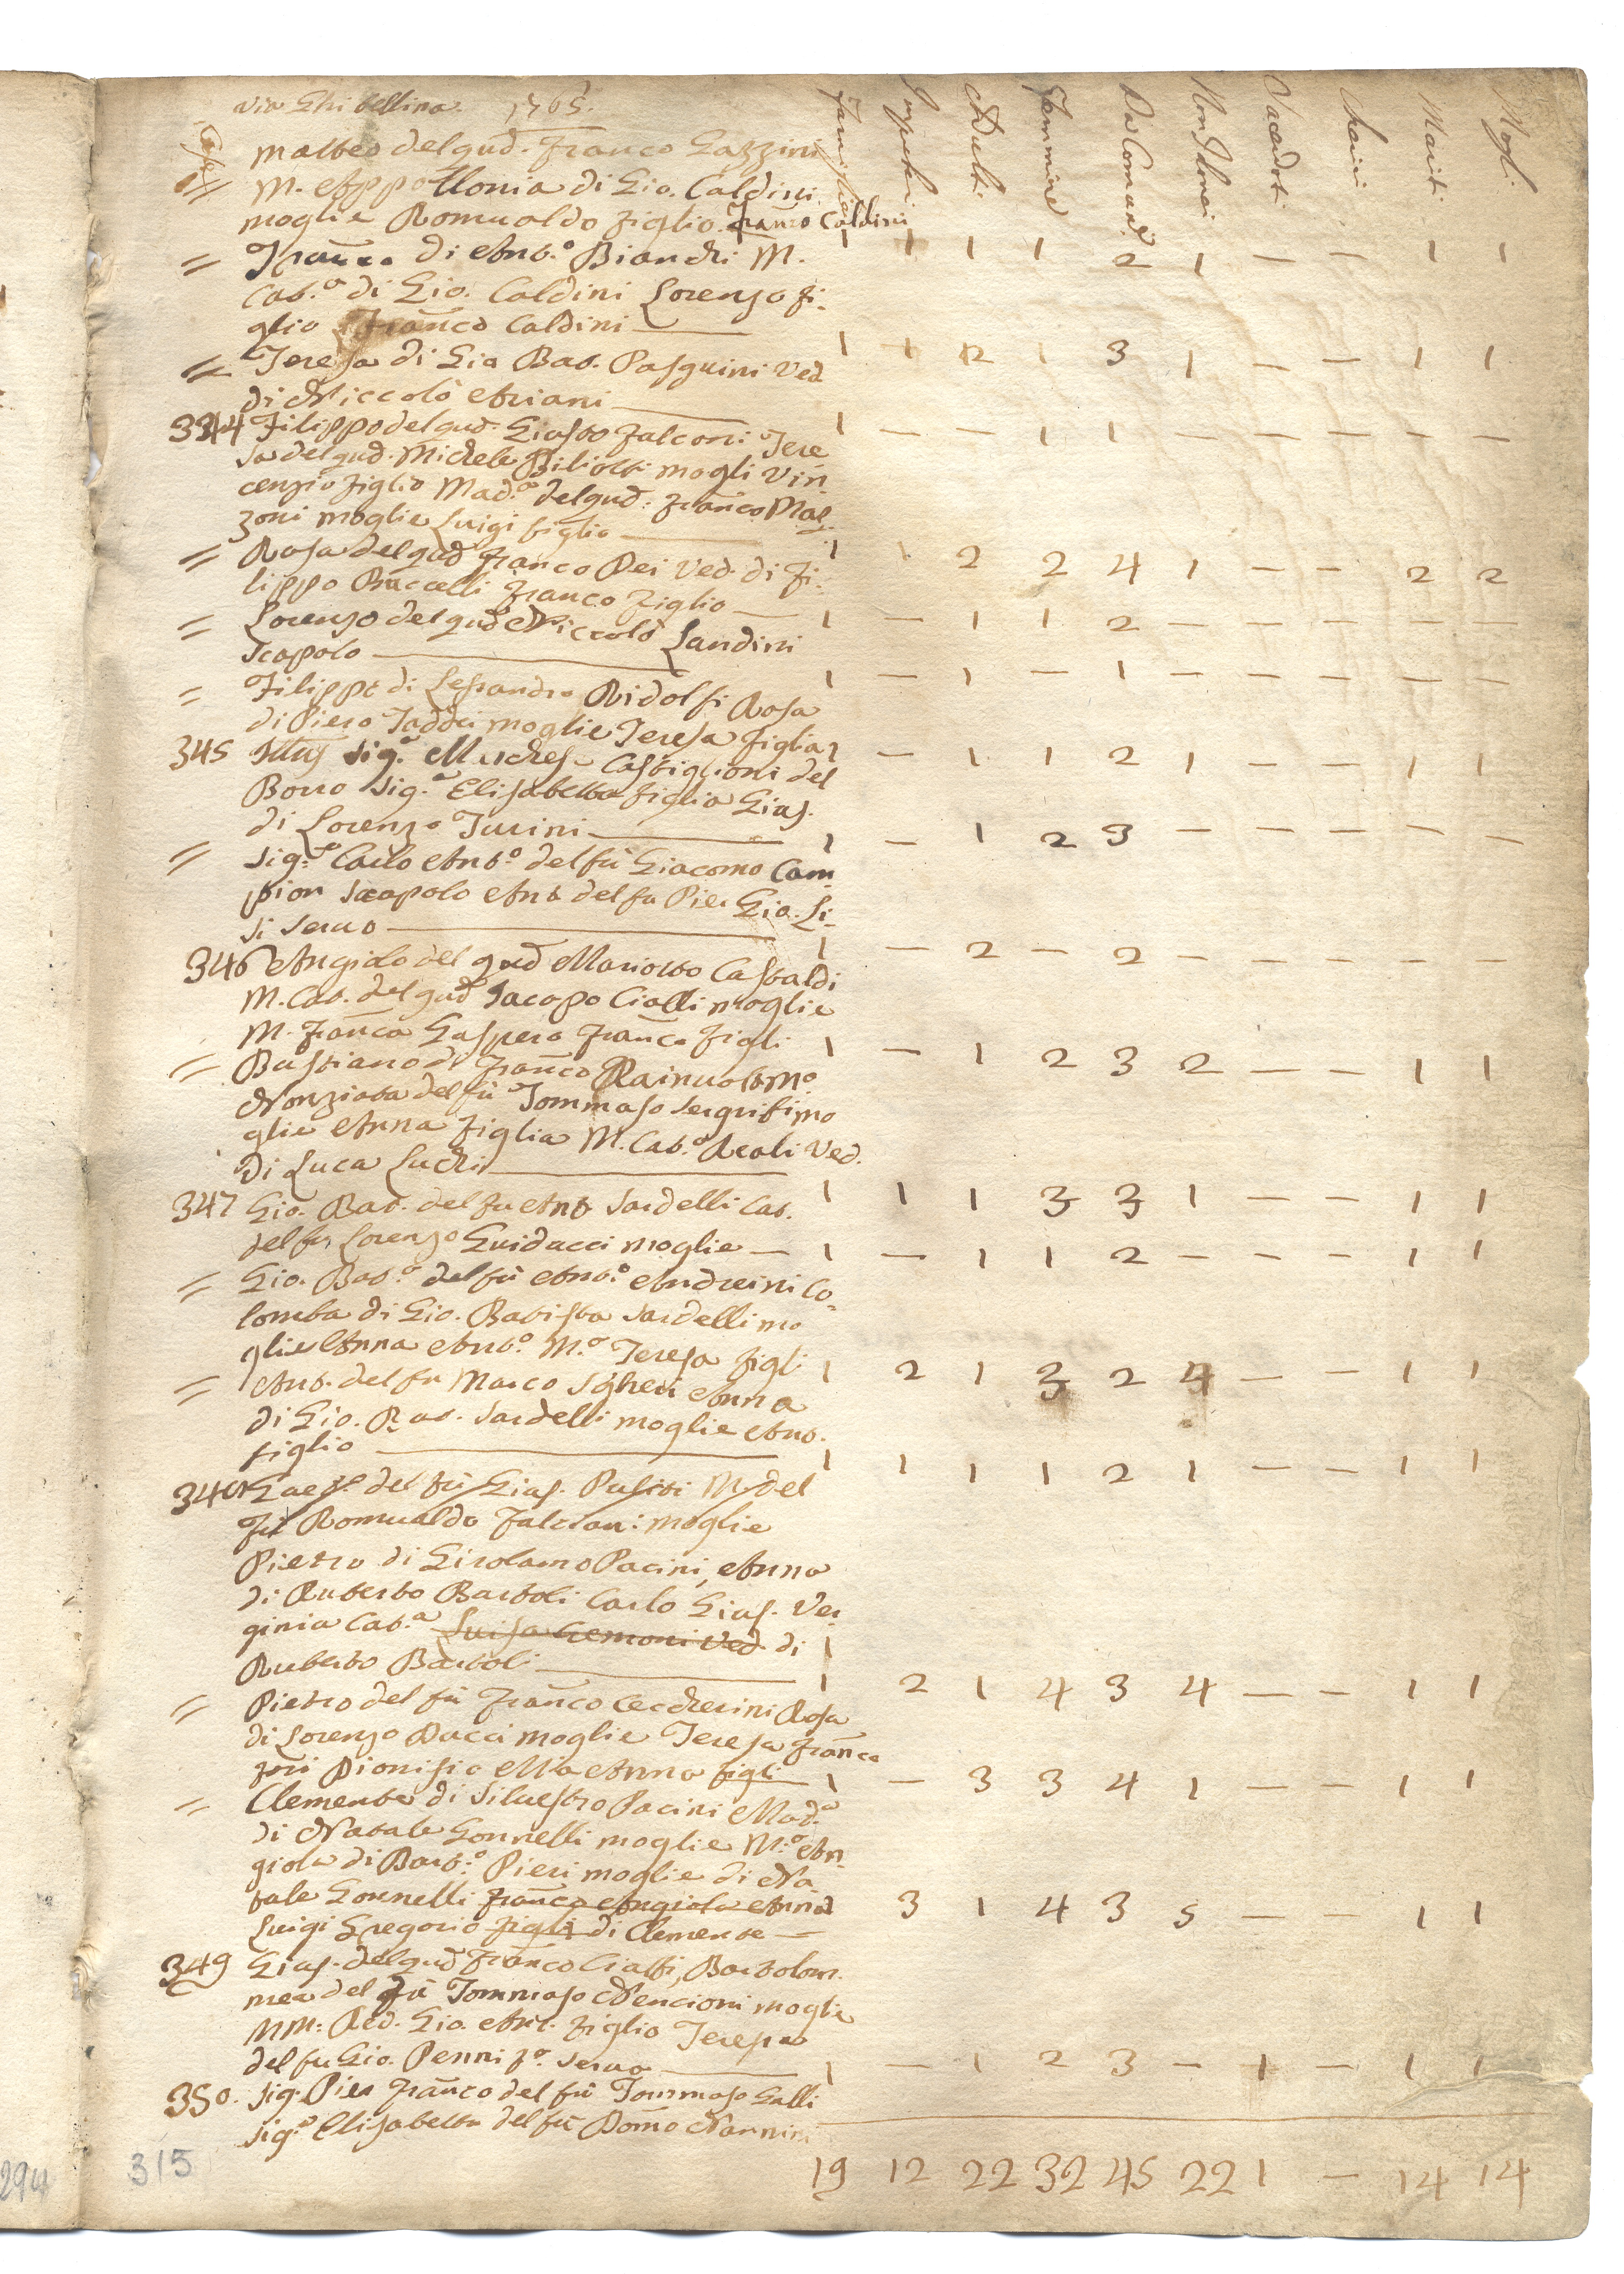 via Ghibellina. 1765.
Case Famiglie Impuberi Adulti Femmine Da Comuni. Non Idonei Sacerdoti Cherici Mariti Mogli
Matteo del qud. Franco Gazzini
M. Appollonia di Gio. Caldini
moglie Romualdo figlio. Franco Caldini
1 1 1 1 2 1 — — 1 1
= Franco di Anto. Bianchi M.
Cat.a di Gio. Caldini Lorenzo fi-
glio Franco Caldini —
1 1 2 1 3 1 — — 1 1
= Teresa di Gio Bat. Pasquini Ved
di Niccolò Ariani —
1 — — 1 1 — — — — —
344 Filippo del qud. Giusto Falconi Tere
sa del qud. Michele Biliotti mogli Vin
cenzio figlio Mad.a del qud. Franco Mal
zoni moglie Luigi figlio —
1 1 2 2 4 1 — — 2 2
= Rosa del qud Franco Pei Ved. di Fi-
lippo Buccelli Franco figlio —
1 — 1 1 2 — — — — —
= Lorenzo del qud Niccolò Landini
Scapolo —
1 — 1 — 1 — — — — —
= Filippo di Lesandro Ridolfi Rosa
di Piero Taddei moglie Teresa figlia
1 — 1 1 2 1 — — 1 1
345 Illus sig.a Marchesa Castiglioni del
Borro Sig.a Elisabetta figlia Gius.
di Lorenzo Turini —
1 — 1 2 3 — — — — —
= Sig.e Carlo Anto. del fù Giacomo Cam-
pion Scapolo Ant del fu Pier Gio. Li-
si servo —
1 — 2 — 2 — — — — —
346 Angiolo del qud Mariotto Castaldi
M. Cat. del qud Jacopo Cialli moglie
M. Franca Gaspero Franco figli
1 — 1 2 3 2 — — 1 1
= Bastiano di Franco Rainuolt M.o
Nonziata del fù Tommaso Sergrifi mo
glie Anna figlia M. Cat.a Reali Ved.
di Luca Luchi —
1 1 1 3 3 1 — — 1 1
347 Gio. Bat. del fu Ant Sardelli Cat.
del fu Lorenzo Guiducci moglie —
1 — 1 1 2 — — — 1 1
= Gio. Bat.a del fù Anto. Andreini Co-
lomba di Gio. Batista Sardelli mo
glie Anna Anto. M.a Teresa figli
1 2 1 3 2 4 — — 1 1
= Ant. del fu Marco Sgheri Anna
di Gio. Bat. Sardelli moglie Ant.
figlio —
1 1 1 1 2 1 — — 1 1
348 del fù Gius. M. del
fù Romualdo Falciani moglie
Pietro di Girolamo Pacini, Anna
di Ruberto Bartoli Carlo Gius. Ver
ginia Cat.a Luisa Cremoni Ved di
Ruberto Bartoli —
1 2 1 4 3 4 — — 1 1
= Pietro del fù Franco Ceccherini Rosa
di Lorenzo Ducci moglie Teresa Franca
Dionisio Ma Anna figli —
1 — 3 3 4 1 — — 1 1
= Clemente di Silvestro Pacini Mad.a
di Natale Gonnelli moglie M.a An-
giola di Bart.o Pieri moglie di Na
tale Gonnelli Franco Angiola Anna
Luigi Gregorio figli di Clemente —
3 1 4 3 5 — — 1 1
349 Gius. del qud Franco Ciatti, Bartolom
mea del fù Tommaso Nencioni moglie
MM: Red. Gio. Ant. figlio Teresa
del fu Gio. Penni serva —
1 — 1 2 3 — 1 — 1 1
350. Sig. Pier Franco del fù Tommaso Galli
sig.a Elisabetta del fù Domo Nannini
19 12 22 32 45 22 1 — 14 14
315
294